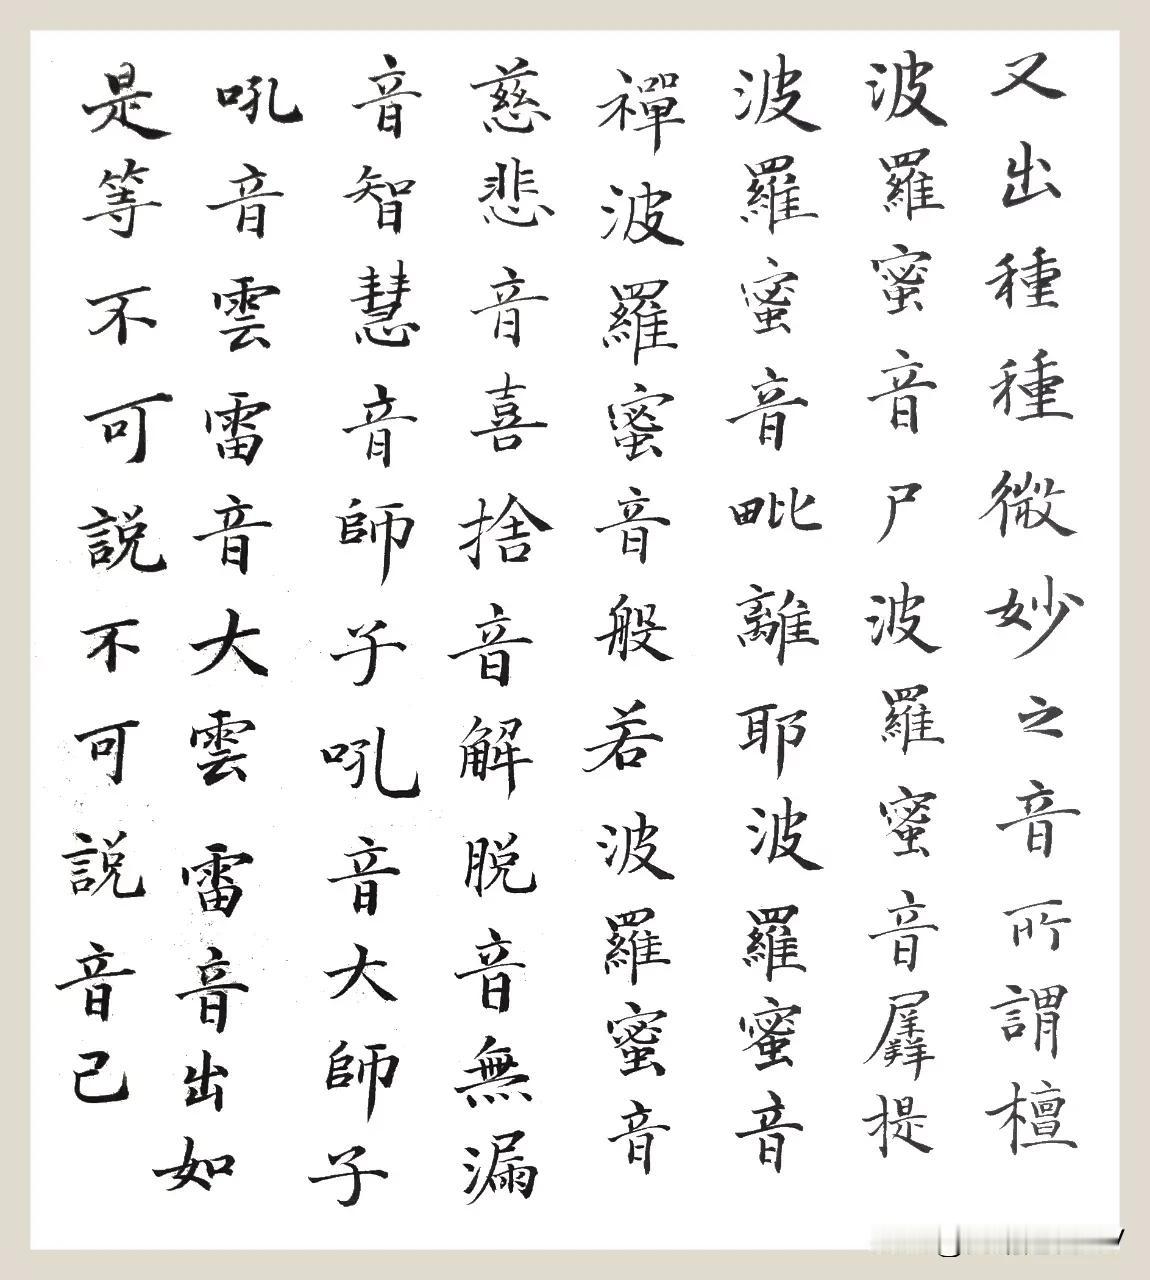 又出種種微妙之音所謂檀
波羅蜜音尸波羅蜜音羼提
波羅蜜音毗離耶波羅蜜音
禪波羅蜜音般若波羅蜜音
慈悲音喜捨音解脫音無漏
音智慧音師子吼音大師子
吼音雲雷音大雲雷音出如
是等不可說不可說音已